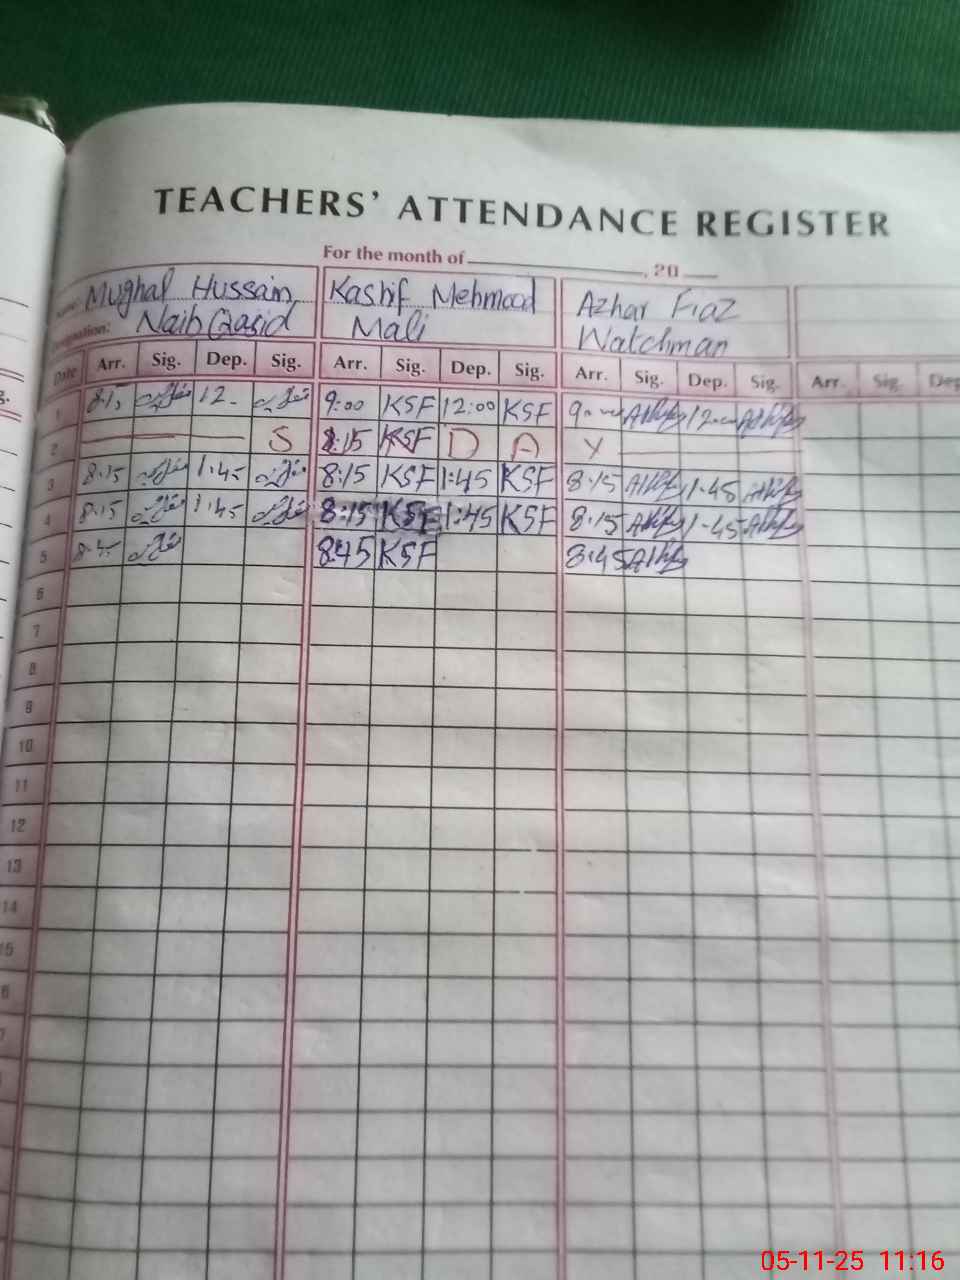 TEACHERS' ATTENDANCE REGISTER
For the month of , 20
Mughal Hussain Kashif Mehmood Azhar Fiaz
Naib Qasid Mali Watchman
Date Arr. Sig. Dep. Sig. Arr. Sig. Dep. Sig. Arr. Sig. Dep. Sig. Arr. Sig. Dep
1 12 9:00 KSF 12:00 KSF
2 S 8:15 KSF D A Y
3 8:15 1:45 8:15 KSF 1:45 KSF 8:15 1-45
4 8:15 1:45 8:15 KSF 1:45 KSF 8:15 1-45
5 8:45 KSF 8:45
6
7
8
9
10
11
12
13
14
15
6
7
05-11-25 11:16